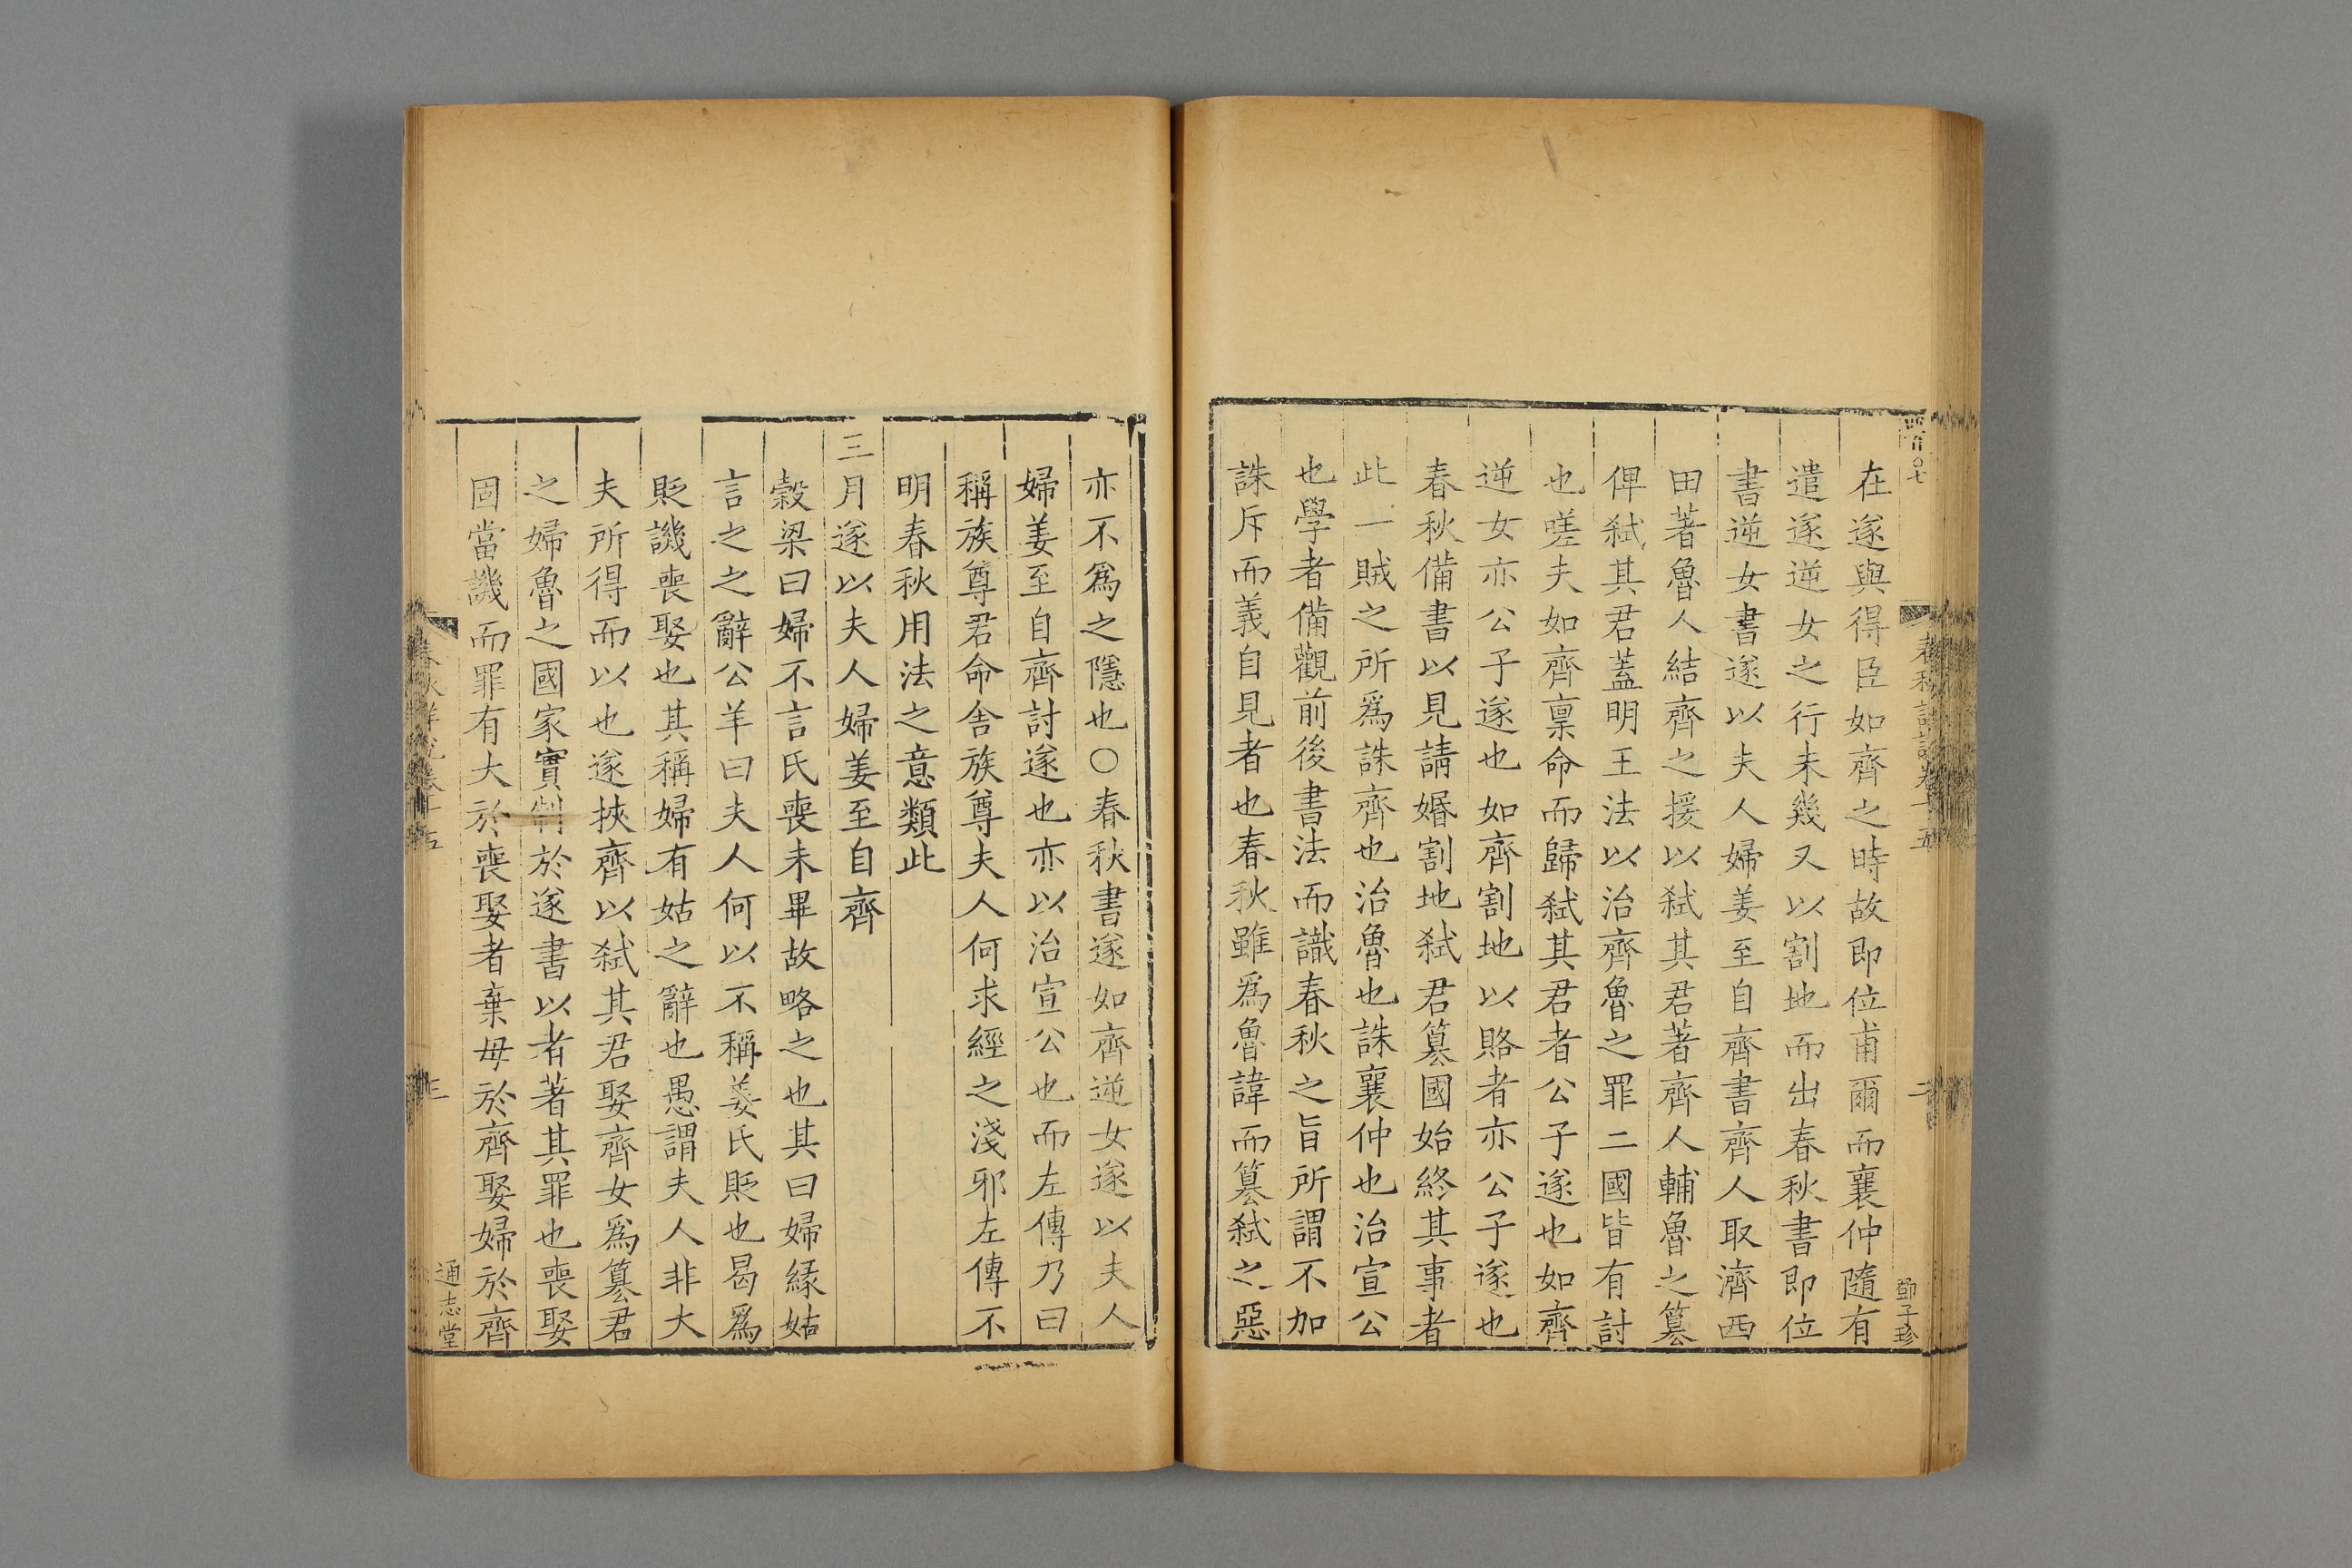 在遂與得臣如齊之時故即位甫爾而襄仲隨有
遣遂逆女之行未幾又以割地而出春秋書即位
書逆女書遂以夫人婦姜至自齊書齊人取濟西
田著魯人結齊之援以弑其君著齊人輔魯之簒
俾弑其君蓋明王法以治齊魯之罪二國皆有討
也嗟夫如齊稟命而歸弑其君者公子遂也如齊
逆女亦公子遂也如齊割地以賂者亦公子遂也
春秋備書以見請婚割地弑君簒國始終其事者
此一賊之所爲誅齊也治魯也誅襄仲也治宣公
也學者備觀前後書法而識春秋之旨所謂不加
誅斥而義自見者也春秋雖爲魯諱而簒弑之惡
鄧子珍
亦不爲之隱也○春秋書遂如齊逆女遂以夫人
婦姜至自齊討遂也亦以治宣公也而左傳乃曰
稱族尊君命舍族尊夫人何求經之淺邪左傳不
明春秋用法之意類此
三月遂以夫人婦姜至自齊
穀梁曰婦不言氏喪未畢故略之也其曰婦緣姑
言之之辭公羊曰夫人何以不稱姜氏貶也曷爲
貶譏喪娶也其稱婦有姑之辭也愚謂夫人非大
夫所得而以也遂挾齊以弑其君娶齊女爲簒君
之婦魯之國家實制於遂書以者著其罪也喪娶
固當譏而罪有大於喪娶者棄母於齊娶婦於齊
春秋詳說卷十五
三
通志堂